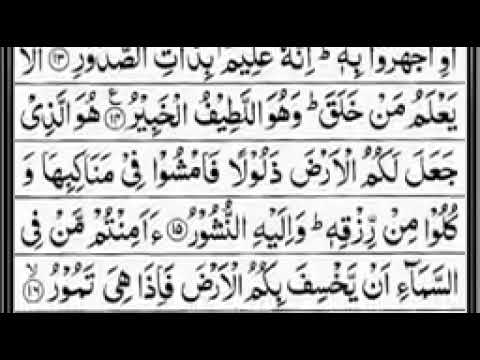 اَوِ اجْهَرُوْا بِهٖ ؕ اِنَّهٗ عَلِیْمٌۢ بِذَاتِ الصُّدُوْرِ ۝۱۳ اَلَا
یَعْلَمُ مَنْ خَلَقَ ؕ وَهُوَ اللَّطِیْفُ الْخَبِیْرُ ۝۱۴ هُوَ الَّذِیْ
جَعَلَ لَكُمُ الْاَرْضَ ذَلُوْلًا فَامْشُوْا فِیْ مَنَاكِبِهَا وَ
كُلُوْا مِنْ رِّزْقِهٖ ؕ وَاِلَیْهِ النُّشُوْرُ ۝۱۵ ءَاَمِنْتُمْ مَّنْ فِی
السَّمَآءِ اَنْ یَّخْسِفَ بِكُمُ الْاَرْضَ فَاِذَا هِیَ تَمُوْرُ ۝۱۶